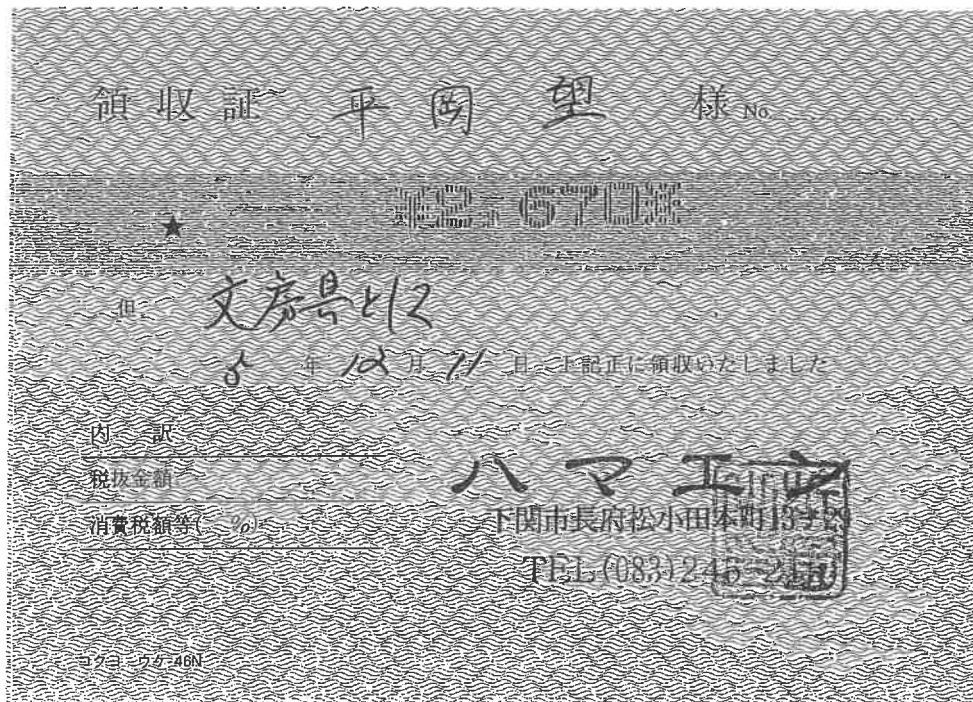 領収証 平岡 望 様 No.
★ ¥2,670※
但 文房具として
5年12月11日 上記正に領収いたしました
内 訳
税抜金額
消費税額等( %)
下関市長府松小田本町13-29
TEL(083)
コクヨ ウケ-46N